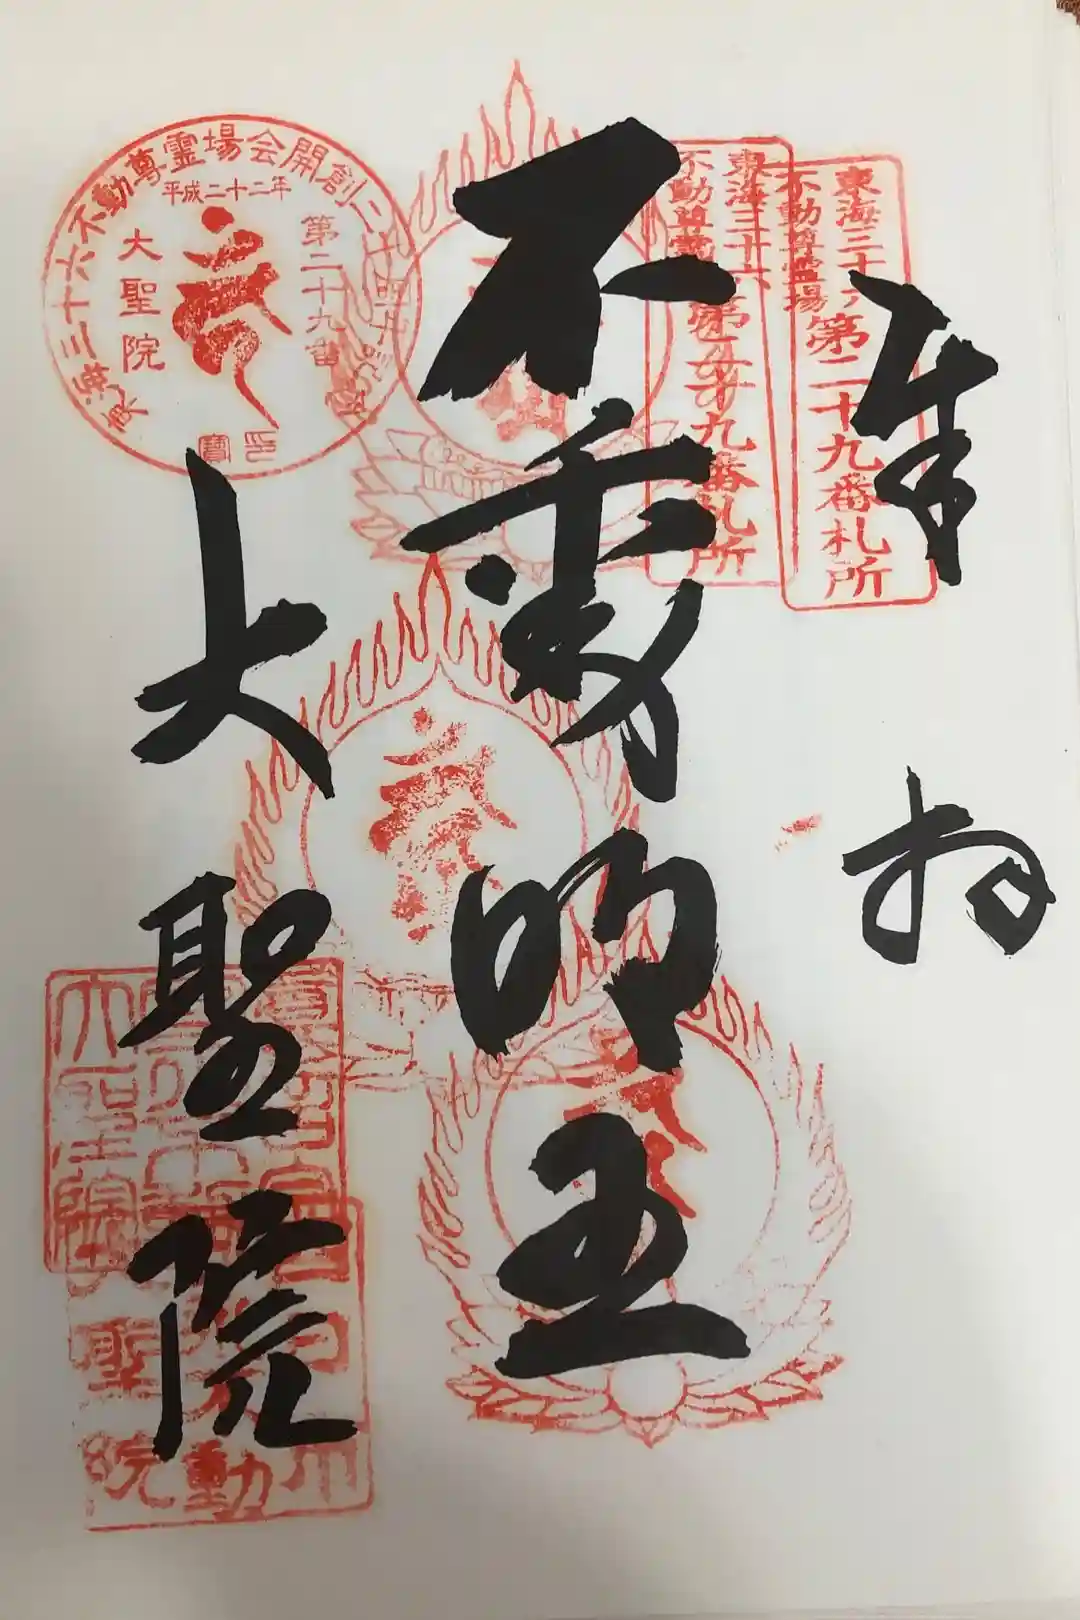 奉拝
東海三十六
不動尊霊場
第二十九番札所
東海三十六
不動尊霊
第二十九番札所
不動明王
東海三十六不動尊霊場会開創二十
平成二十二年
第二十九番
大聖院
寶印
大聖院
大聖院
聖院
動